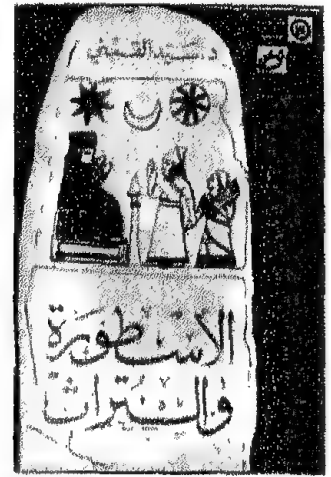 د. سيد القمني
الأسطورة
والتراث